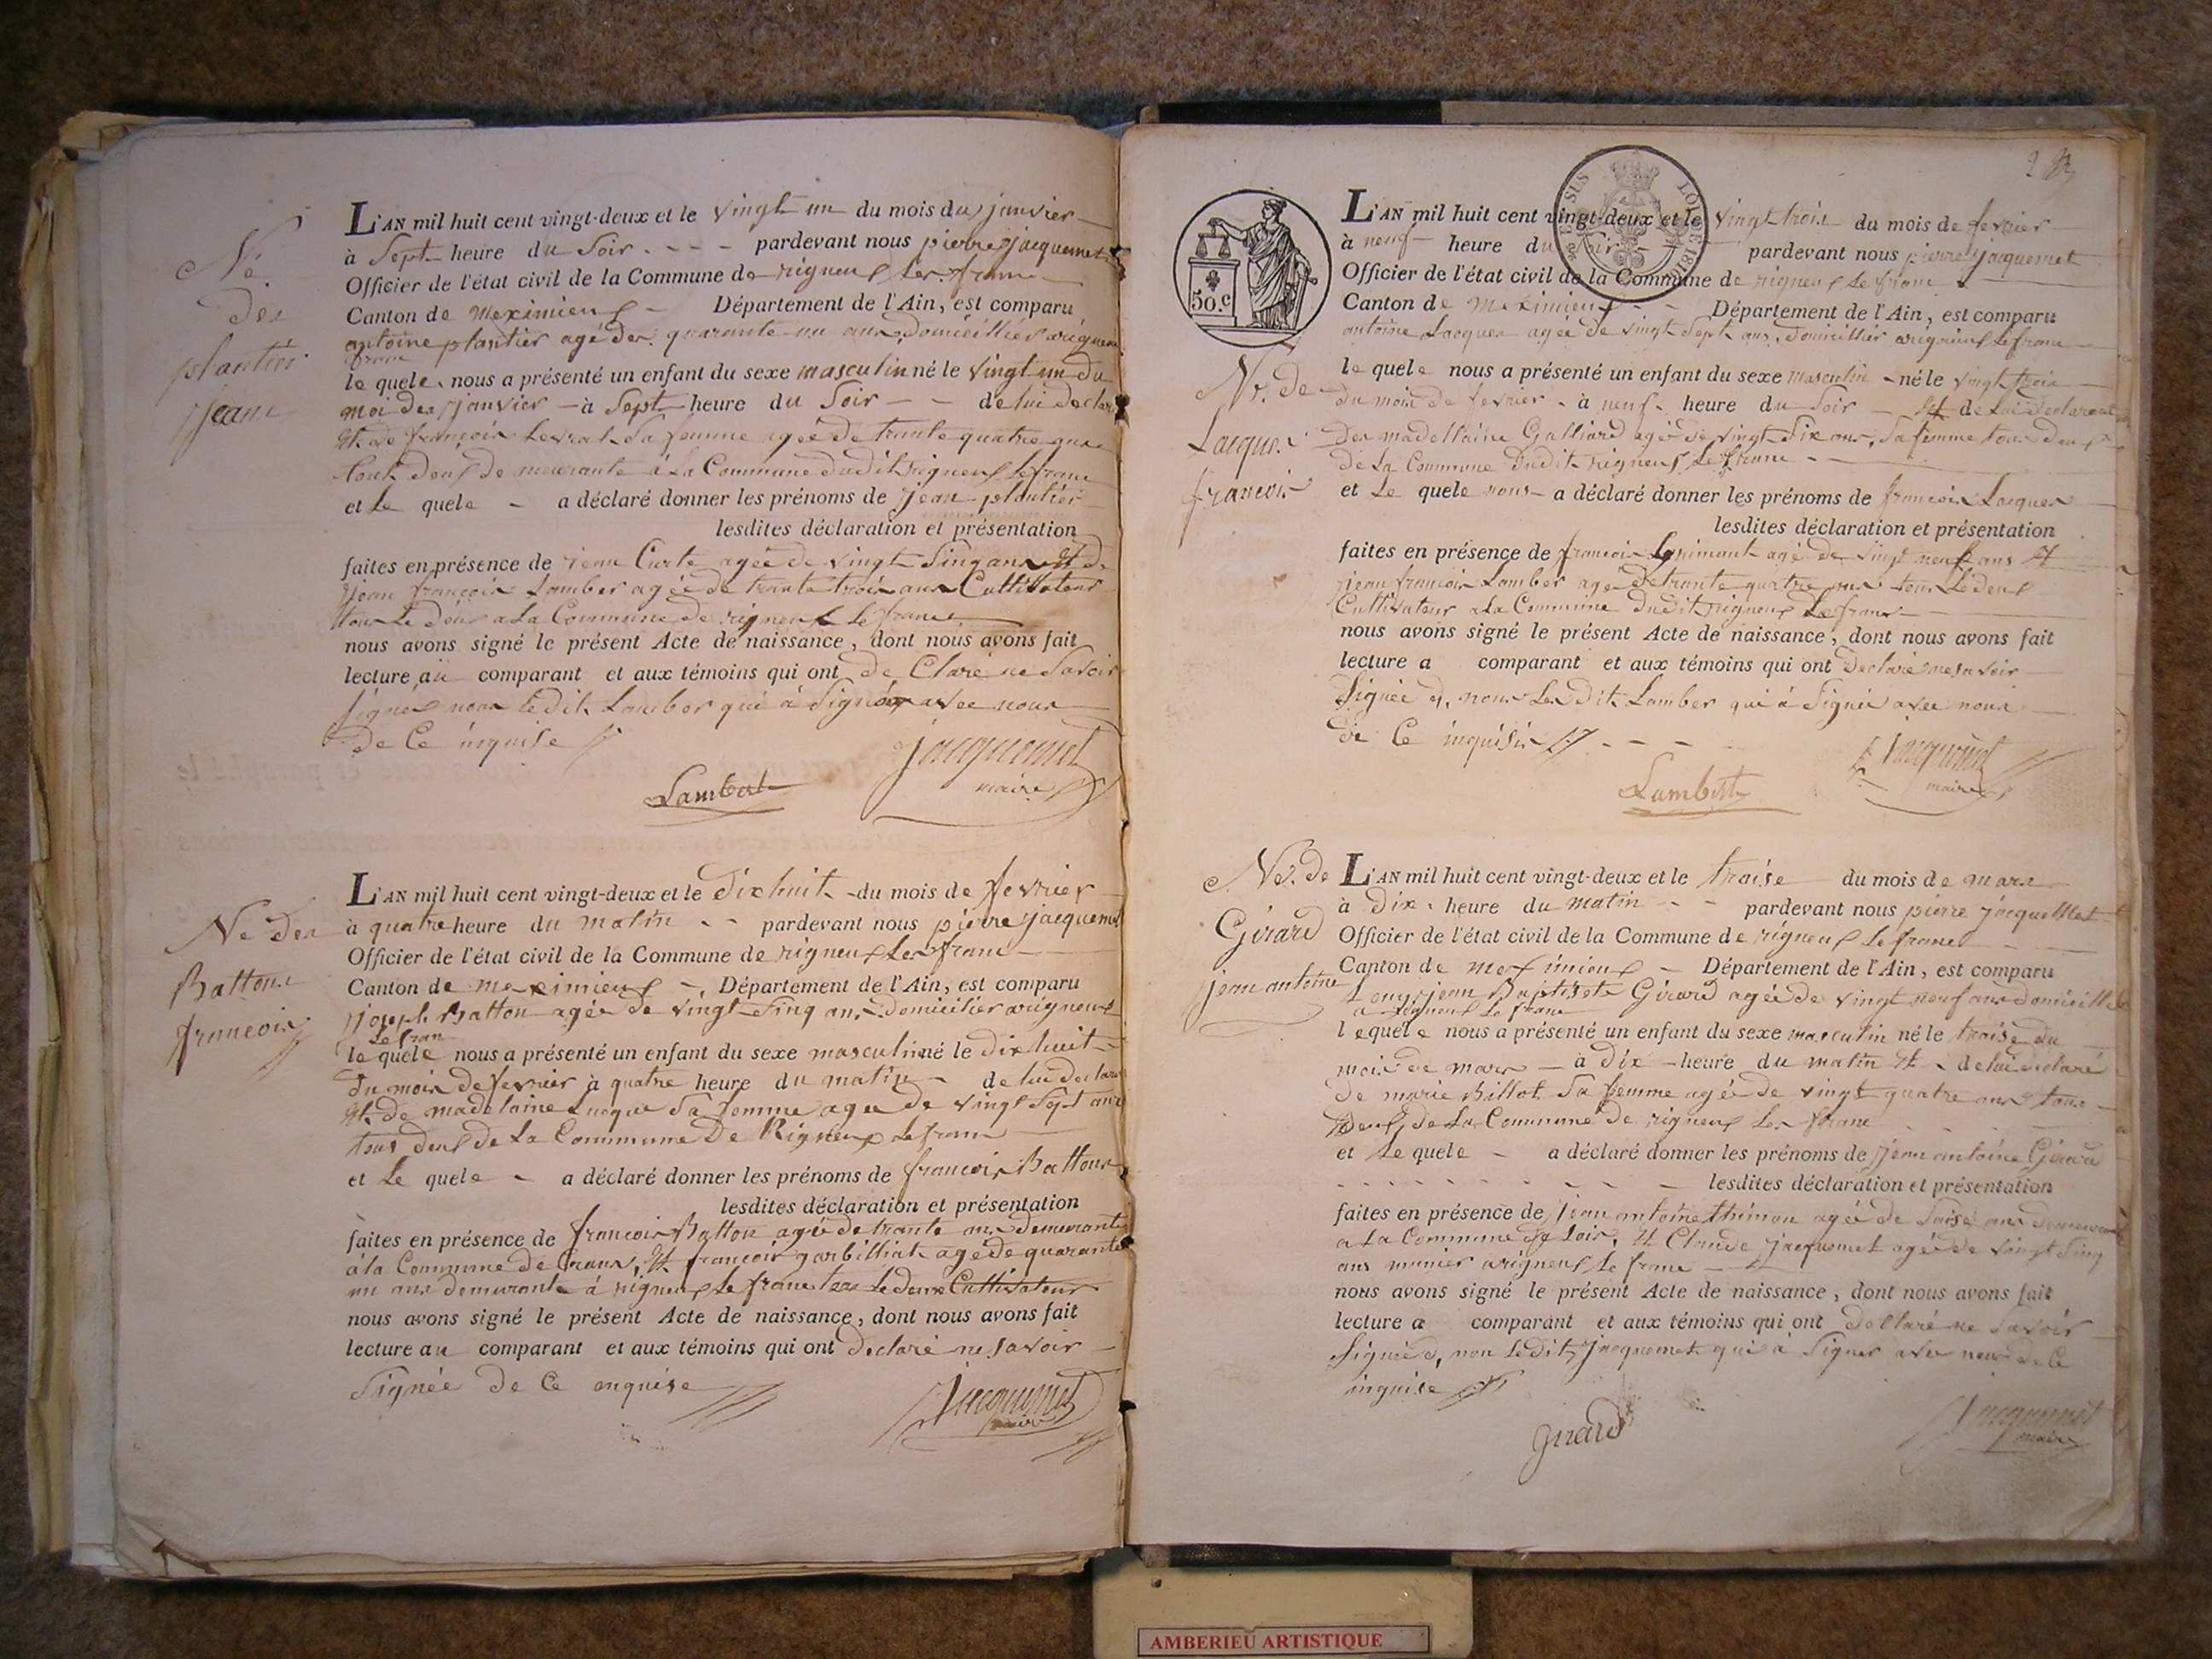 Né
des
plantier
jean
L'AN mil huit cent vingt-deux et le vingt un du mois du janvier
à Sept heure du Soir pardevant nous pierre jacquemet
Officier de l'état civil de la Commune de rigneux les franc
Canton de meximieux Département de l'Ain, est comparu
antoine plantier agé des quarante un ans, domicillier arigneux
franc
le quele nous a présenté un enfant du sexe masculin né le vingt un du
moi des janvier à Sept heure du Soir de lui declar
et de françois Levrat Sa femme ageé de trante quatre
tout deux de meurante à la Commune dudit rigneux le franc
et le quele a déclaré donner les prénoms de jean plantier
lesdites déclaration et présentation
faites en présence de agée de vingt Sinq ans et de
jean françois Lamber agée de trante trois ans Cultivateur
tous Le deux a la Commune de rigneux Le franc
nous avons signé le présent Acte de naissance, dont nous avons fait
lecture au comparant et aux témoins qui ont de Claré ne Savoir
signer nous ledit Lamber qui à Signée avec nous
de Ce inquise
Lambert
jacquemet
maire
Né des
Battons
francois
L'AN mil huit cent vingt-deux et le Dixhuit du mois de fevrier
à quatre heure du matin pardevant nous pierre jacquemet
Officier de l'état civil de la Commune de rigneux Les franc
Canton de meximieux Département de l'Ain, est comparu
joseph Batton agée de vingt Sinq ans Domicilier arigneux
Le fran
le quele nous a présenté un enfant du sexe masculin né le Dixhuit
Du mois de fevrier à quatre heure du matin de lui declaré
et de madelaine Luque Sa femme agee de vingt Sept ans
tous deux de La Commune De Rigneux Le franc
et Le quele a déclaré donner les prénoms de francois Battons
lesdites déclaration et présentation
faites en présence de francois Batton agée de trante ans demeurante
à la Commune de Crans, et francois garbilliat agé de quarante
un ans demurante à rigneux Le franc tous Le deux Cultivateur
nous avons signé le présent Acte de naissance, dont nous avons fait
lecture au comparant et aux témoins qui ont Declaré ne savoir
Signée De Ce enquise
Jacquemet
maire
2
50.C
LOI DE 1816
Né. de
Lacques
francois
L'AN mil huit cent vingt-deux et le vingt trois du mois de fevrier
à neuf heure du Soir pardevant nous pierre jacquemet
Officier de l'état civil de la Commune de rigneux Le franc
Canton de meximieux Département de l'Ain, est comparu
antoine Lacques agée de vingt Sept ans, Domicillier arigneux Le franc
le quele nous a présenté un enfant du sexe masculin né le vingt trois
du mois de fevrier à neuf heure du Soir et de Lui declarant
des madellaine Galliard agée de vingt Six ans, Sa femme tous deux
de La Commune Dudit rigneux Le franc
et Le quele nous a déclaré donner les prénoms de francois Lacques
lesdites déclaration et présentation
faites en présence de francois agé de vingt neuf ans et
jean francois Lamber agé de trante quatre ans tous Le deux
Cultivateur a La Commune Dudit rigneux Le franc
nous avons signé le présent Acte de naissance, dont nous avons fait
lecture a comparant et aux témoins qui ont Declaré ne savoir
Signée nous Les Dit Lamber qui à Signée avec nous
de Ce inquisés
Lambert
Jacquemet
maire
Né. de
Girard
jean antoine
L'AN mil huit cent vingt-deux et le traise du mois de mars
à Dix heure du matin pardevant nous pierre jacquemet
Officier de l'état civil de la Commune de rigneux Le franc
Canton de meximieux Département de l'Ain, est comparu
jean Baptiste Girard agée de vingt neuf ans domicillé
a rigneux Le franc
lequele nous a présenté un enfant du sexe masculin né le traise du
mois de mars à Dix heure du matin et de lui déclaré
De marie Billot Sa femme agée de vingt quatre ans tous
Deux de La Commune De rigneux Les franc
et Le quele a déclaré donner les prénoms de jean antoine Girard
lesdites déclaration et présentation
faites en présence de jean antoine agée de Saise ans demeurant
a La Commune de Loir, et Claude jacquemet agée de vingt Sinq
ans munier arigneux Le franc
nous avons signé le présent Acte de naissance, dont nous avons fait
lecture a comparant et aux témoins qui ont declaré ne Savoir
Signée, non Le Dit jacquemet qui à Signer avec nous de Ce
inquise
Girard
Jacquemet
maire
AMBERIEU ARTISTIQUE